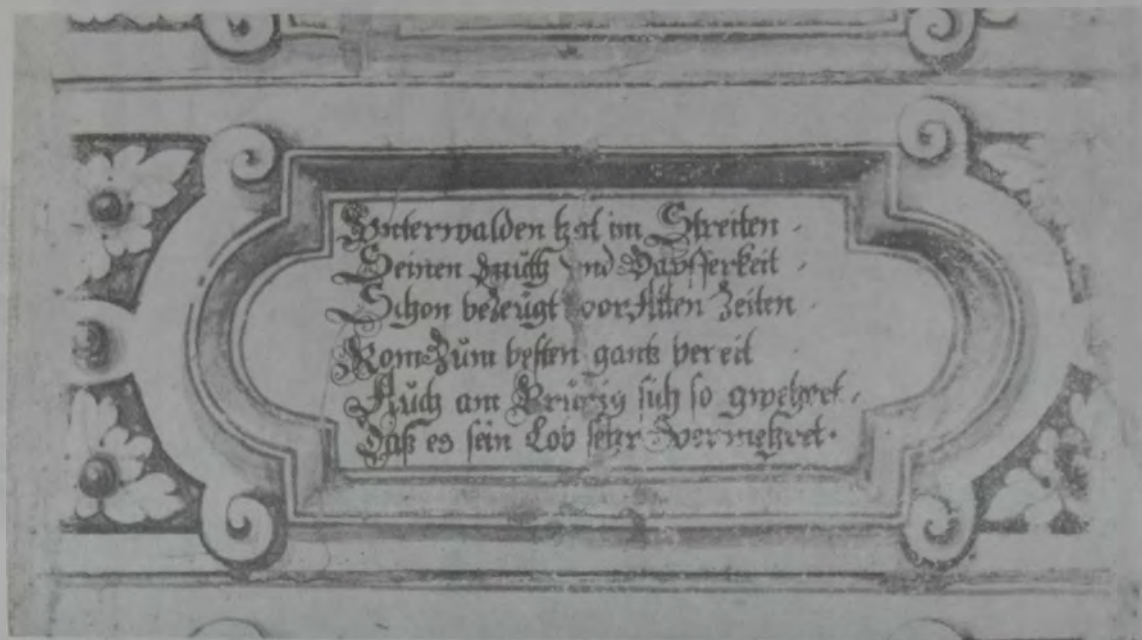 Vnterwalden hat im Streiten
Seinen Muth vnd Dapfferkeit
Schon bezeugt vor Alten Zeiten
Rom Zům besten gantz bereit
Aůch am Brünig sich so gwehret
Daß es sein Lob sehr vermehret.